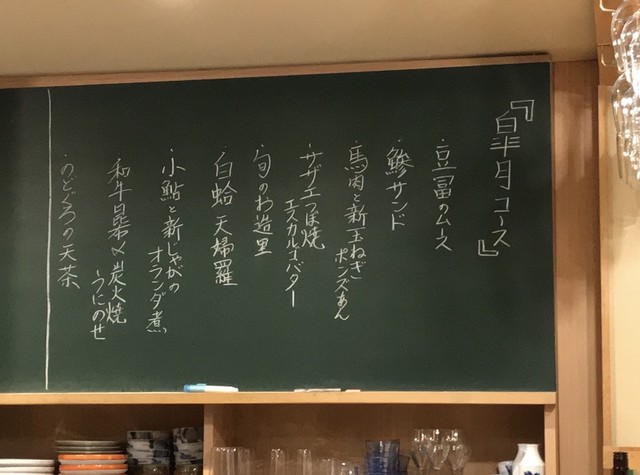 『皐月コース』
・豆冨のムース
・鯵サンド
・馬肉と新玉ねぎ
ポンズあん
・サザエつぼ焼
エスカルゴバター
・旬のお造里
・白蛤 天婦羅
・小鮎と新じゃがの
オランダ煮
・和牛昆布〆炭火焼
うにのせ
・のどぐろの天茶